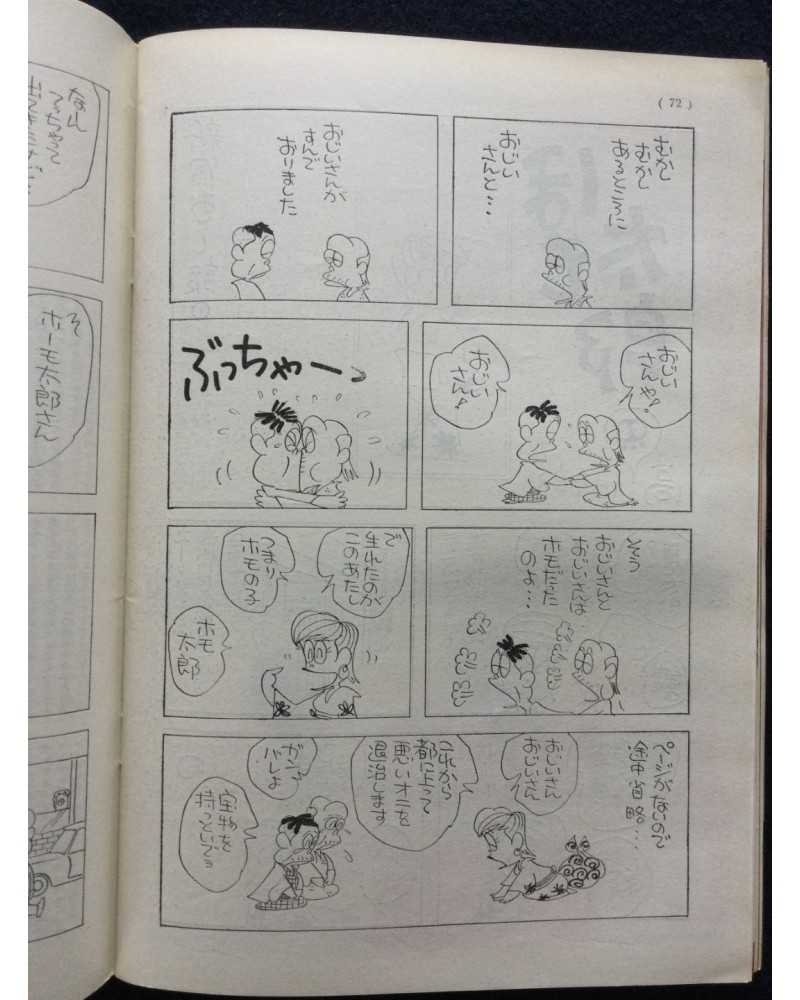 (72)
むかし
むかし
あるところに
おじい
さんと・・
おじいさんが
すんで
おりました
おじい
さんや!
おじい
さん!
ぶっちゃー
そう
おじいさんと
おじいさんは
ホモだった
のよ・・・
で
生れたのが
このあたし
つまり
ホモの子
ホモ
太郎
ページがないので
途中省略・・・
おじいさん
おじいさん
これから
都に上って
悪いオニを
退治します
ガン
バレよ
宝物を
持っといでョ
なん
でっちゃって
そ
ホーモ太郎さん